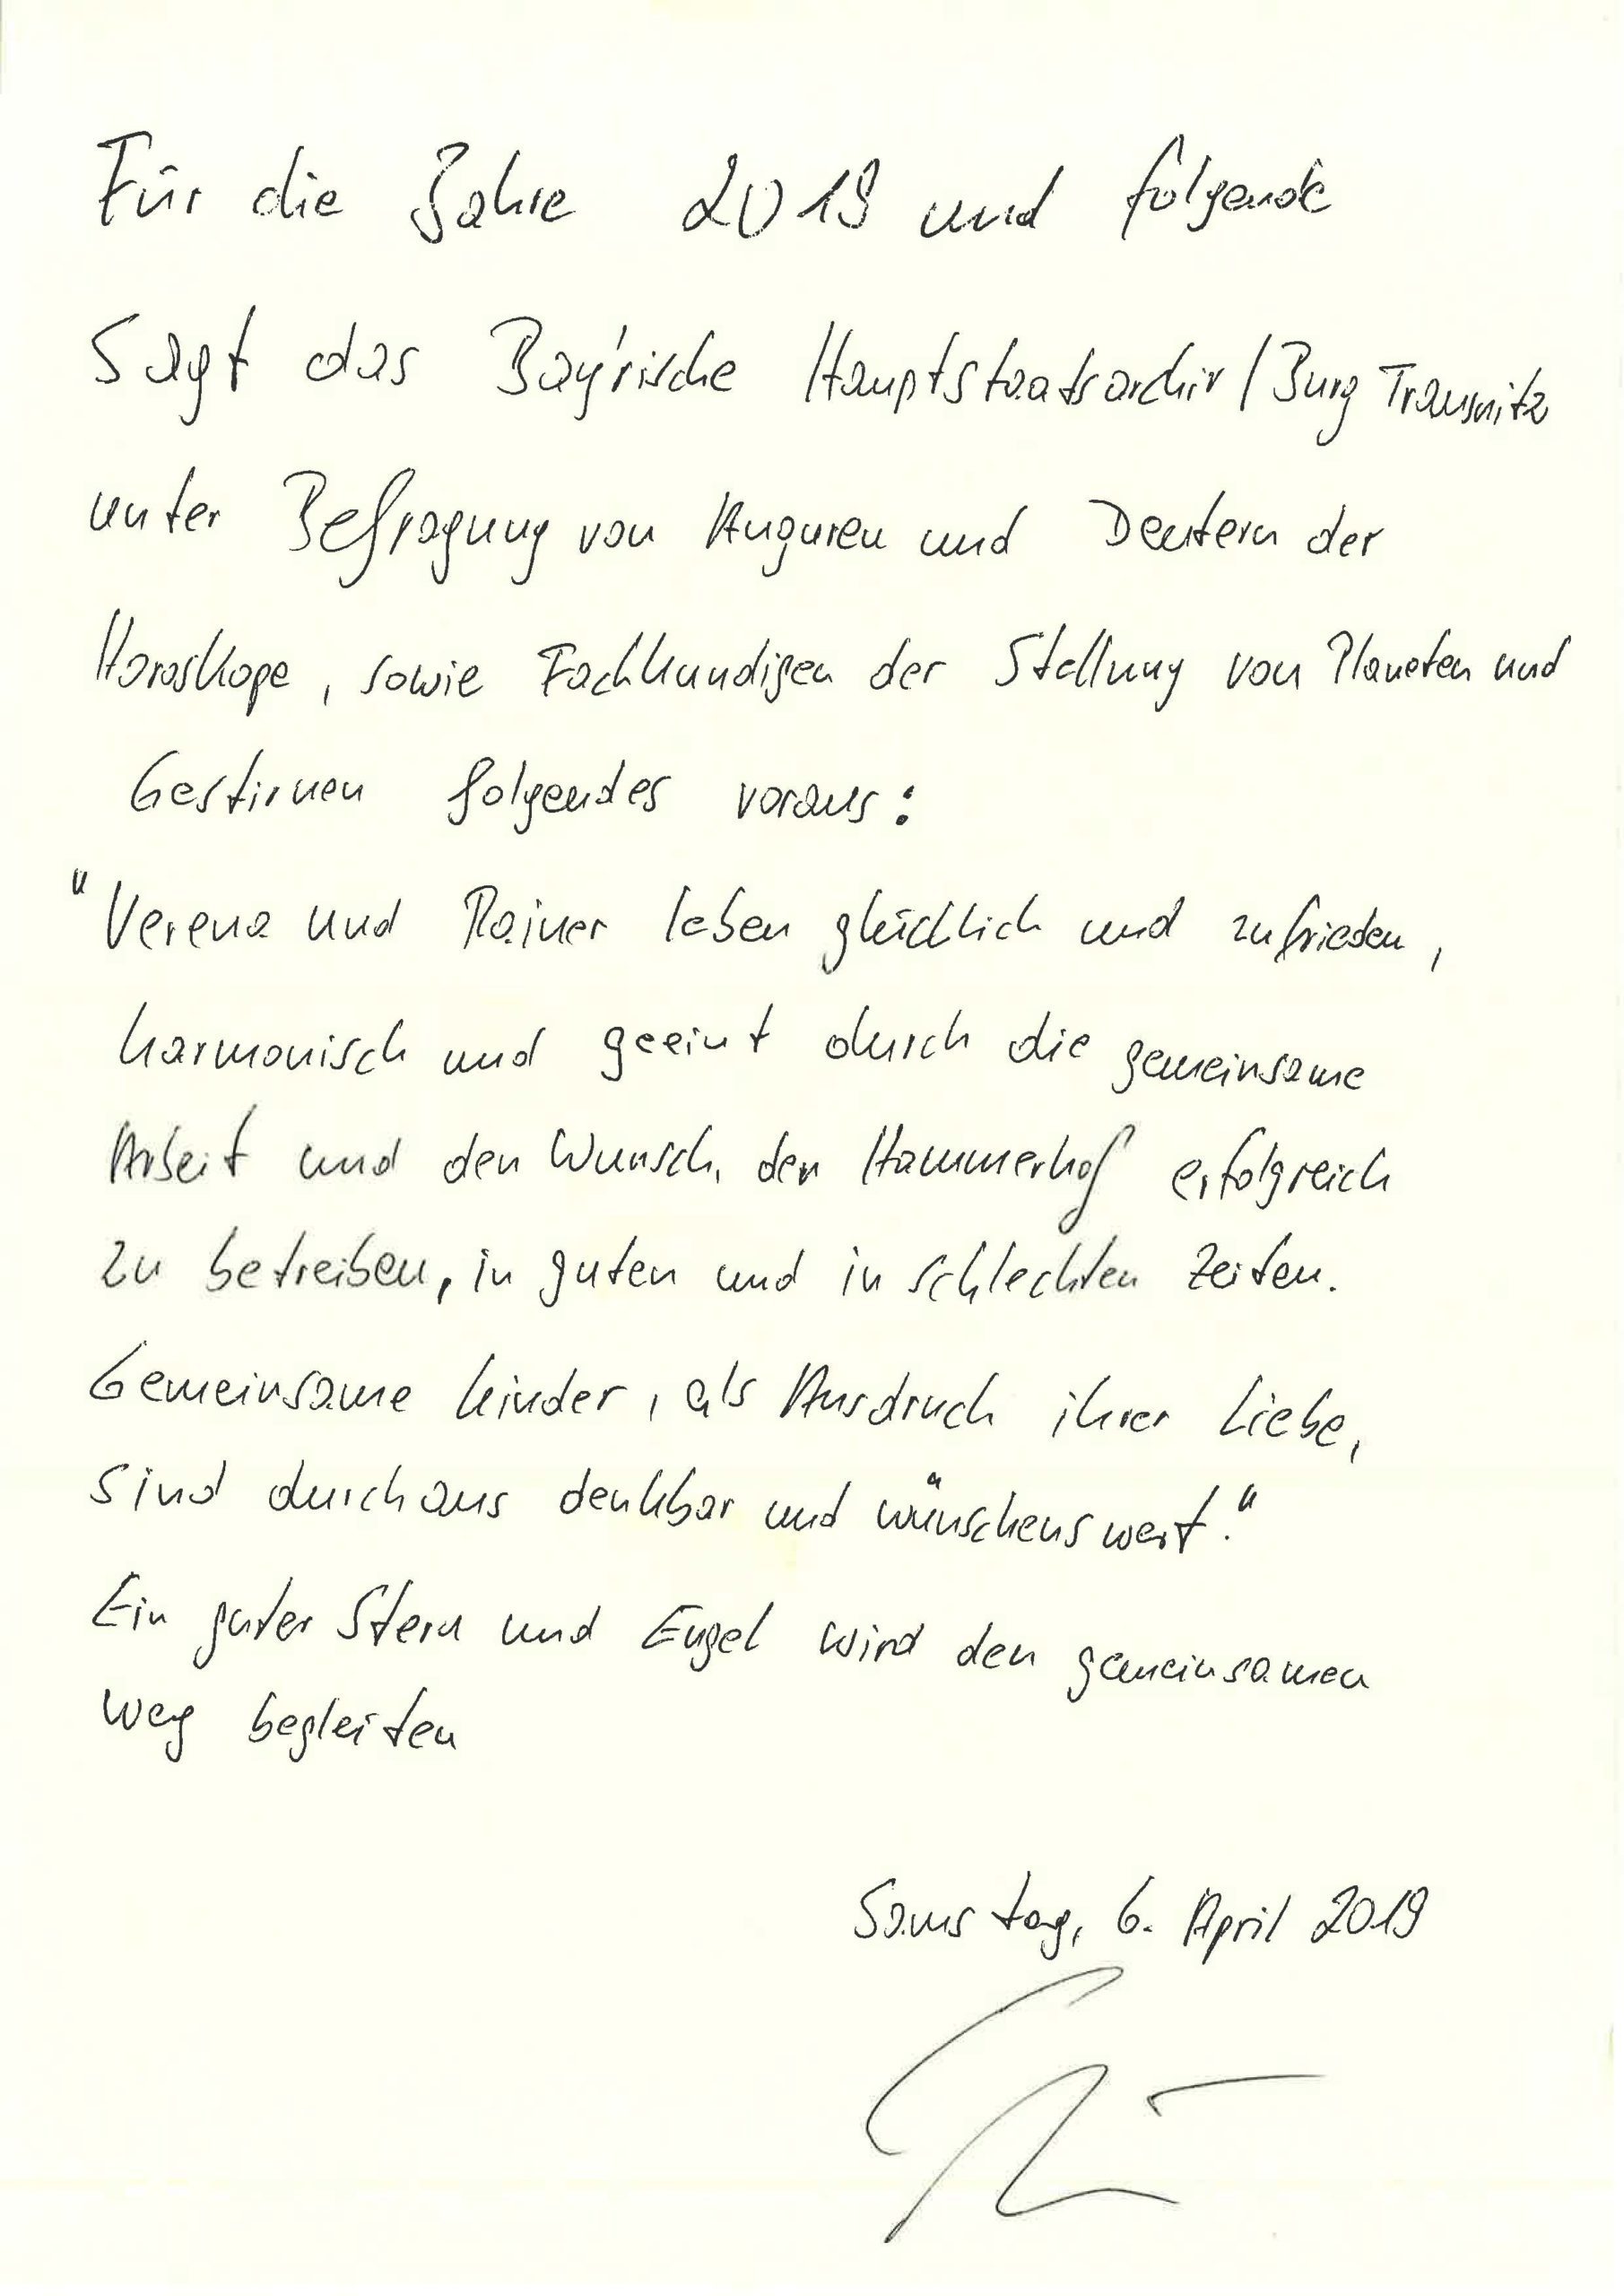 Für die Jahre 2019 und folgende
Sagt das Bay'rische Hauptstaatsarchiv / Burg Trausnitz
unter Befragung von Auguren und Deutern der
Horoskope, sowie Fachkundigen der Stellung von Planeten und
Gestirnen folgendes voraus:
"Verena und Rainer leben glücklich und zufrieden,
harmonisch und geeint durch die gemeinsame
Arbeit und den Wunsch, den Hammerhof erfolgreich
zu betreiben, in guten und in schlechten Zeiten.
Gemeinsame Kinder, als Ausdruck ihrer Liebe,
sind durchaus denkbar und wünschenswert."
Ein guter Stern und Engel wird den gemeinsamen
Weg begleiten
Samstag, 6. April 2019